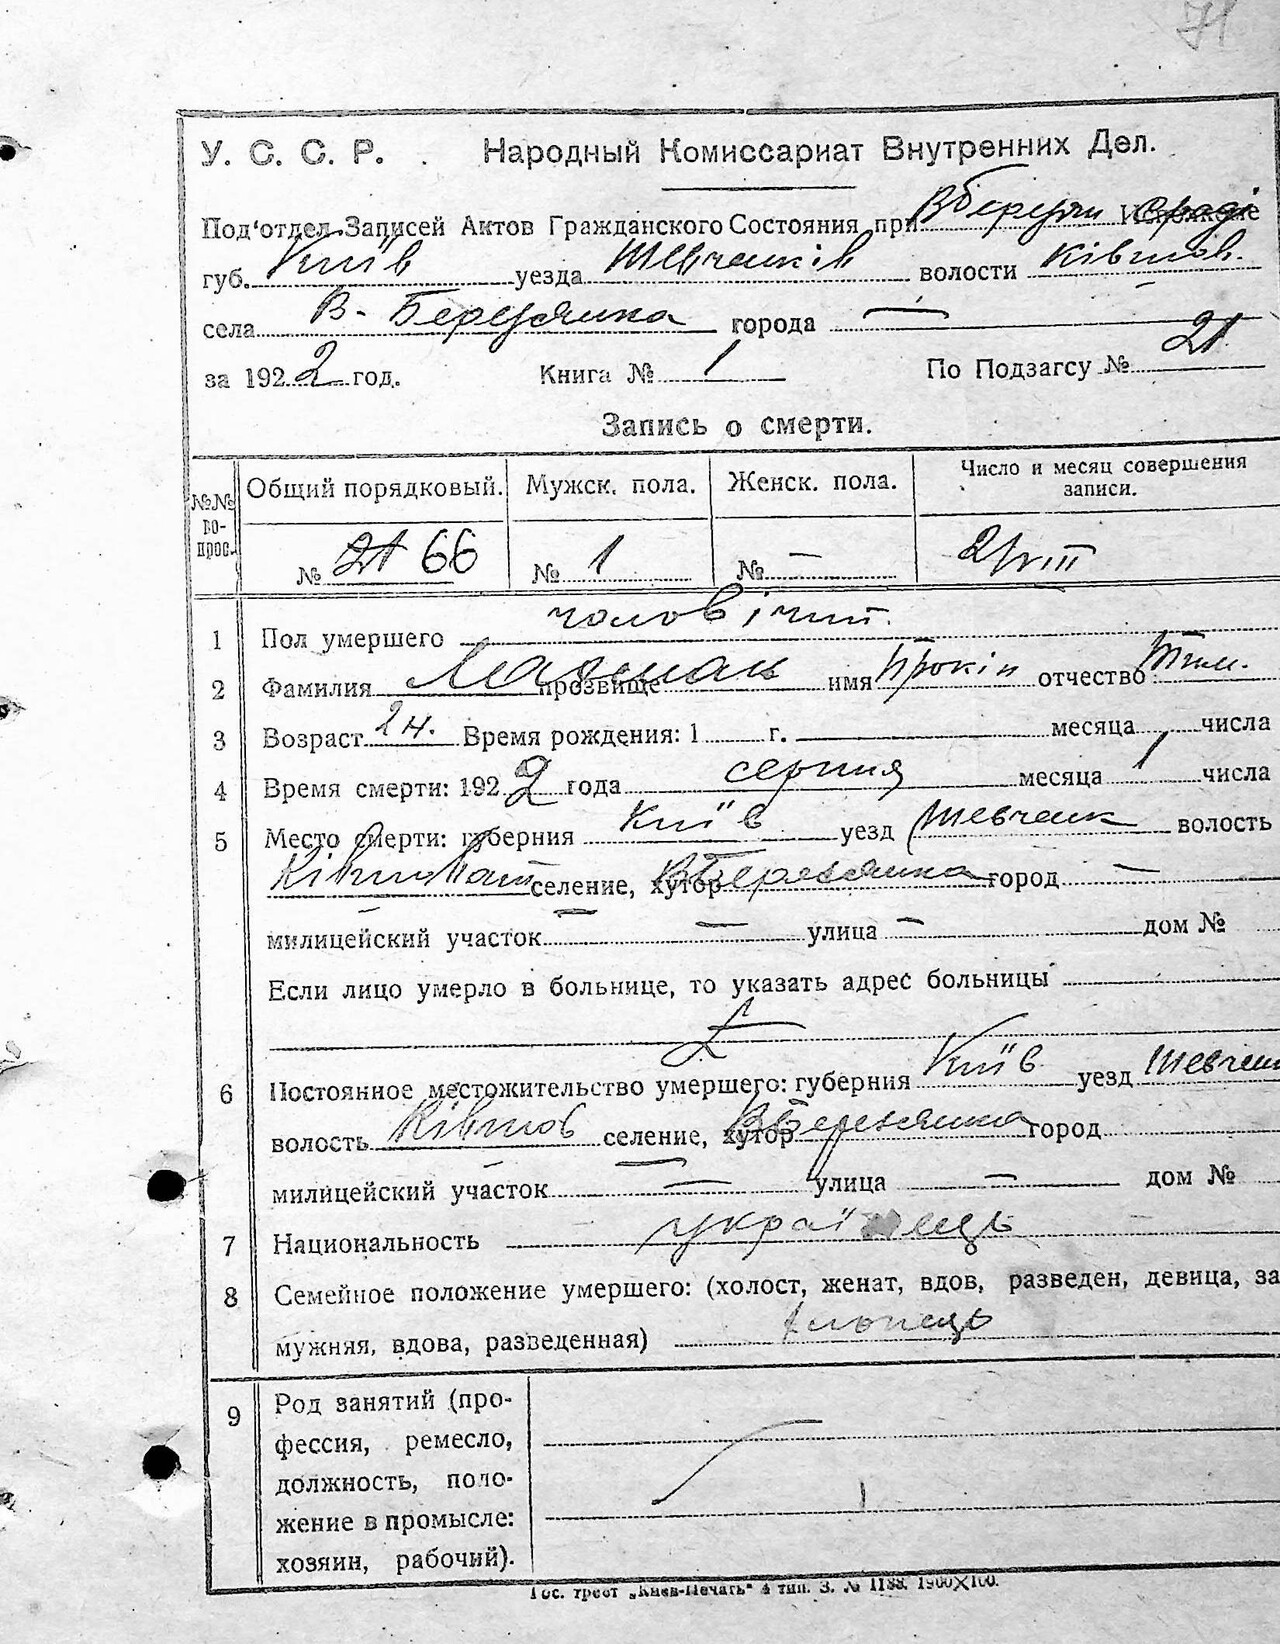 71
У. С. С. Р. . Народный Комиссариат Внутренних Дел.
Под'отдел Записей Актов Гражданского Состояния при
губ. Київ уезда Шевченків волости Ківшов.
села В-Березянка города —
за 1922 год. Книга № 1 По Подзагсу № 21
Запись о смерти.
№№ вопрос. Общий порядковый. Мужск. пола. Женск. пола. Число и месяц совершения записи.
№ 21 66 № 1 № — 2/VIII
1 Пол умершего чоловічий.
2 Фамилия прозвище имя Прокіп отчество Тим.
3 Возраст 2 н. Время рождения: 1 г. месяца числа
4 Время смерти: 1922 года серпня месяца 1 числа
5 Место смерти: губерния Київ уезд Шевченк волость
селение, хутор ВБерезянка город —
милицейский участок — улица — дом №
Если лицо умерло в больнице, то указать адрес больницы
6 Постоянное местожительство умершего: губерния Київ уезд Шевчен
волость Ківшов селение, хутор ВБерезянка город
милицейский участок — улица — дом №
7 Национальность українець
8 Семейное положение умершего: (холост, женат, вдов, разведен, девица, за
мужняя, вдова, разведенная) хлопець
9 Род занятий (про-
фессия, ремесло,
должность, поло-
жение в промысле:
хозяин, рабочий).
Гос. трест „Киев-Печать" 4 тип. З. № 1188. 1900×100.